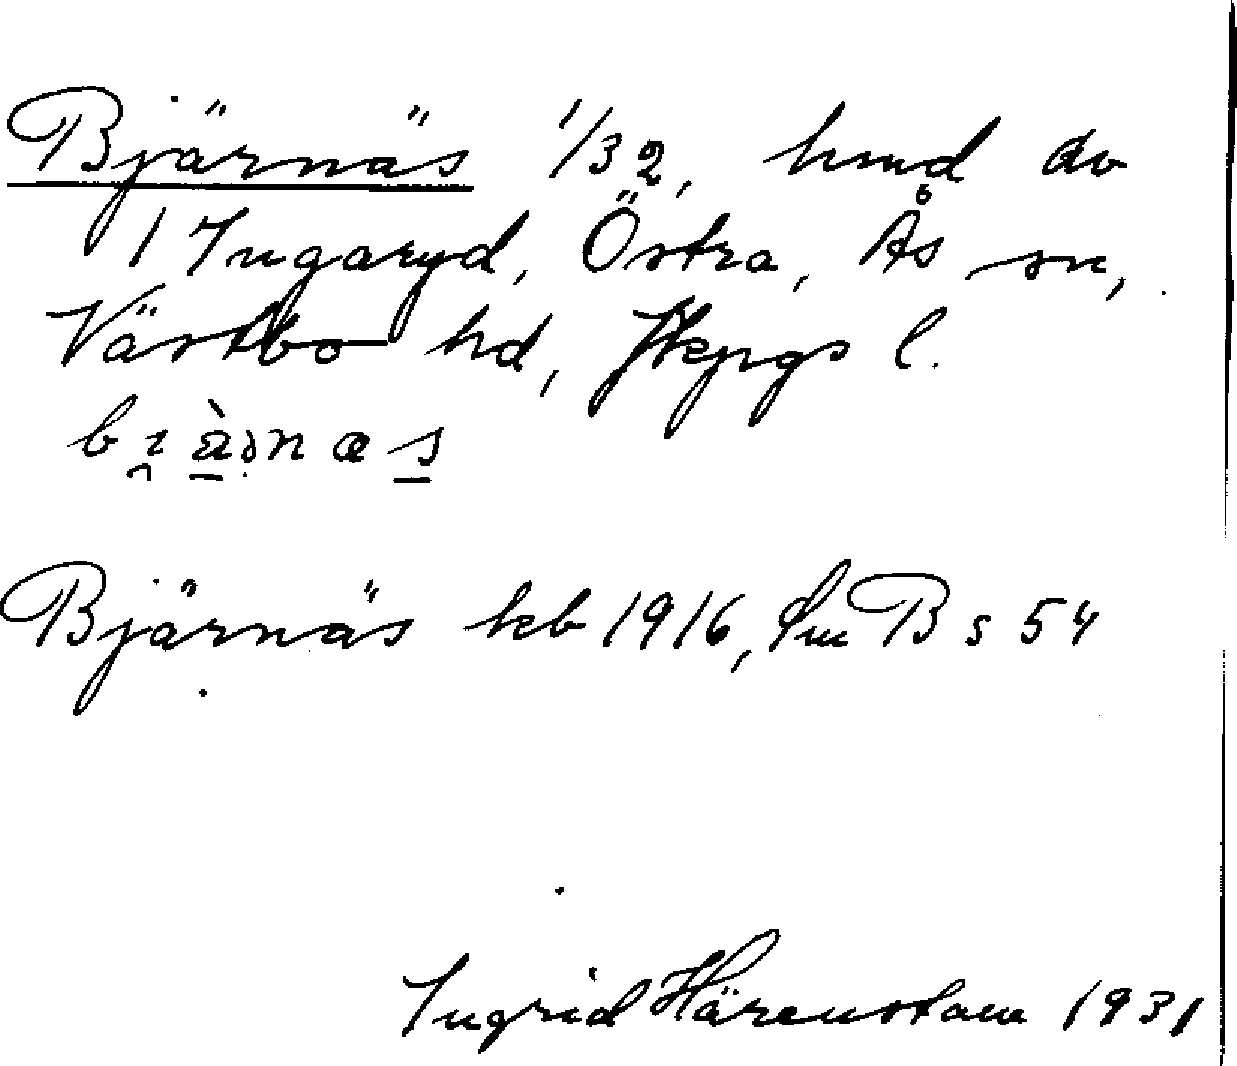 Bjärnäs 1/32, hmd av
1 Ingaryd, Östra, Ås sn,
Västbo hd, Jkpgs l.
Bjärnäs kb 1916, Sm B s 54
Ingrid Härenstam 1931